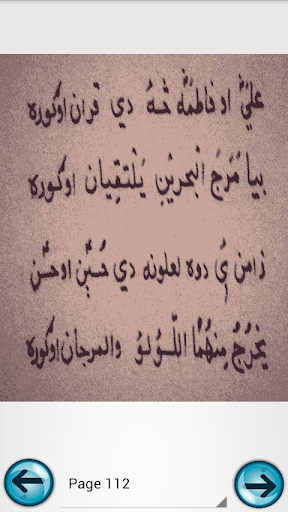 علیؓ او فاطمهؓ څه دي قران اوګوره
بیا مَرَجَ الْبحرَیْنِ یَلْتَقِیَان اوګوره
زامن ئې دوه لعلونه دي حُسَیْن او حَسَن
یَخْرُجُ مِنْهُمَا اللّؤلؤ والمرجان اوګوره
Page 112